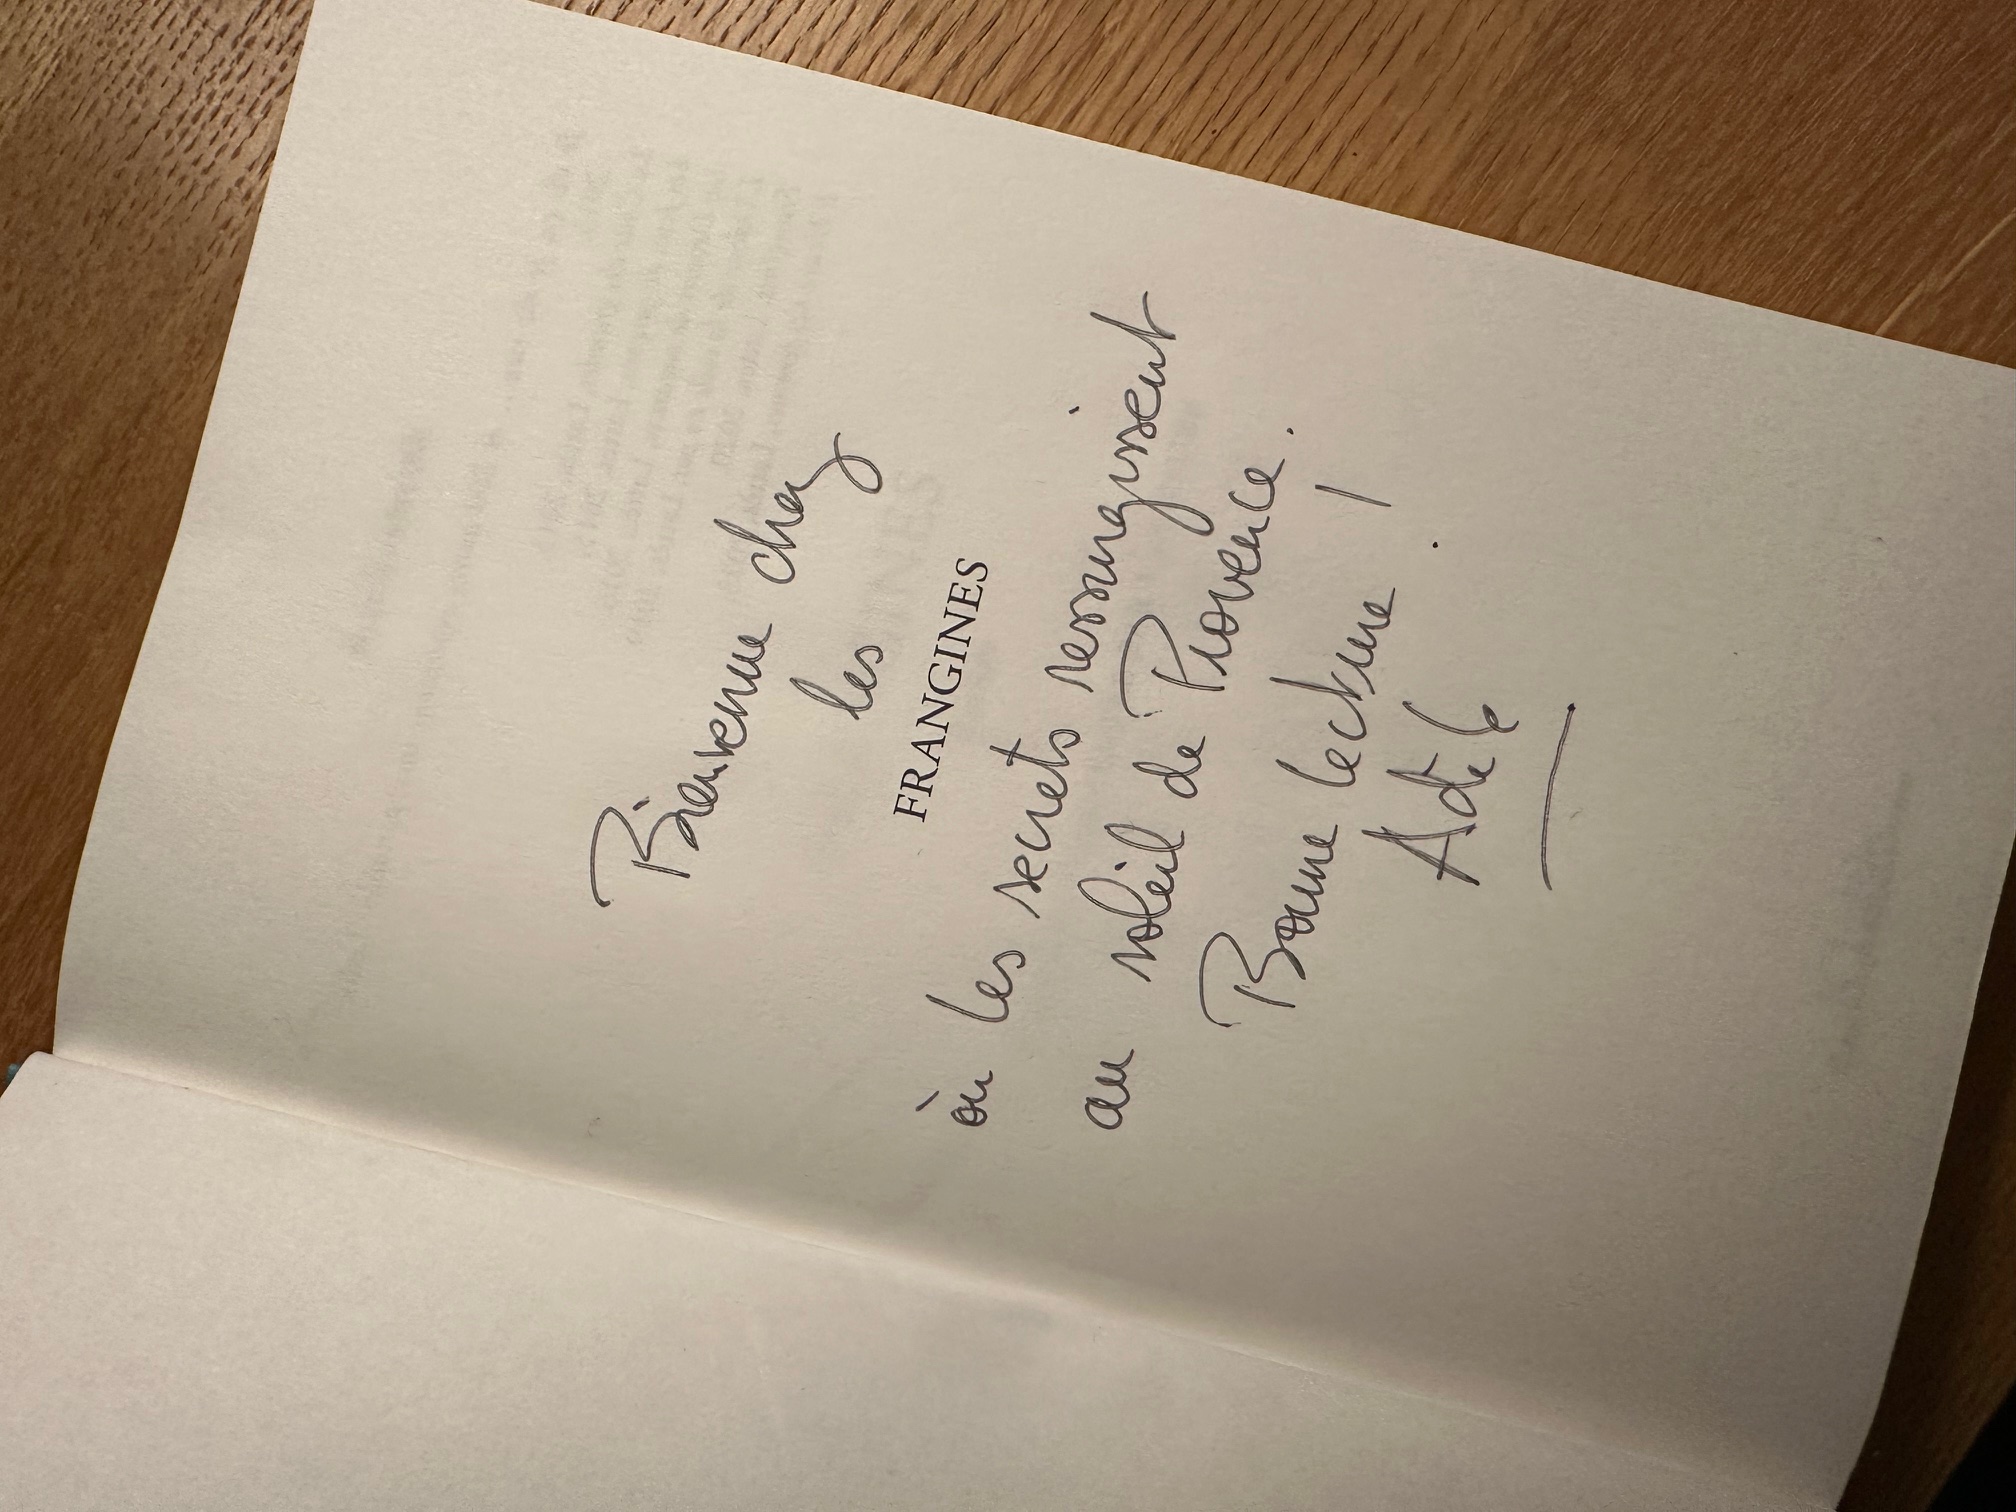 Bienvenue chez
les
FRANGINES
où les secrets ressurgissent
au soleil de Provence.
Bonne lecture !
Adèle